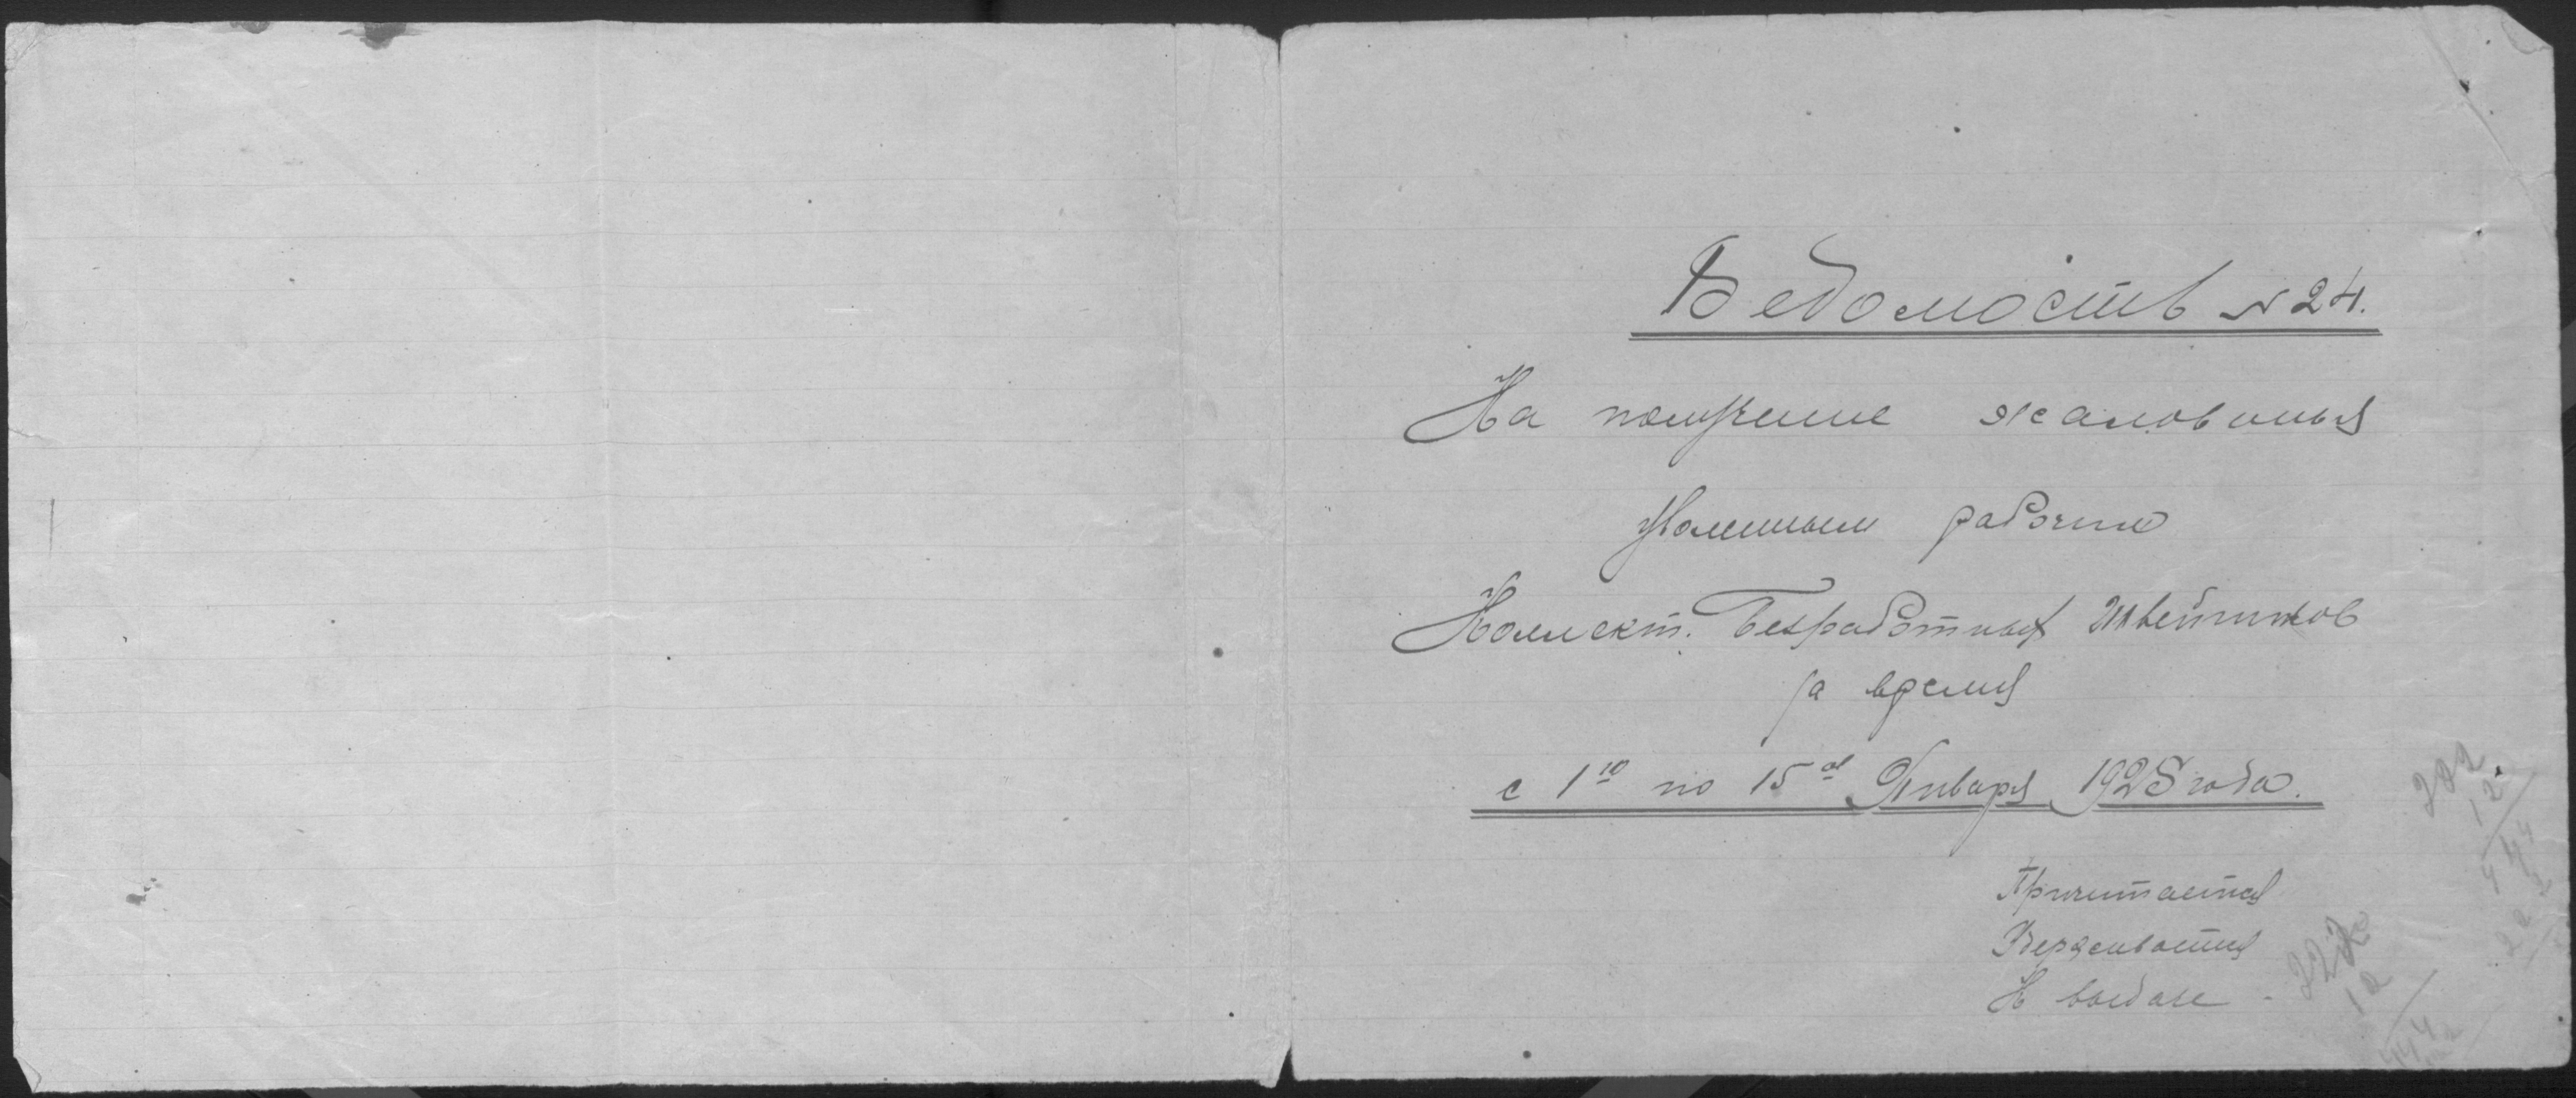 Ведомость № 24.
На получение жалованья
уволенным рабочим
Коллект. Безработных Швейников
за время
с 1го по 15ое Января 1925 года.
Причитается
Удерживается
К выдаче -
222
12
444
222
12
444